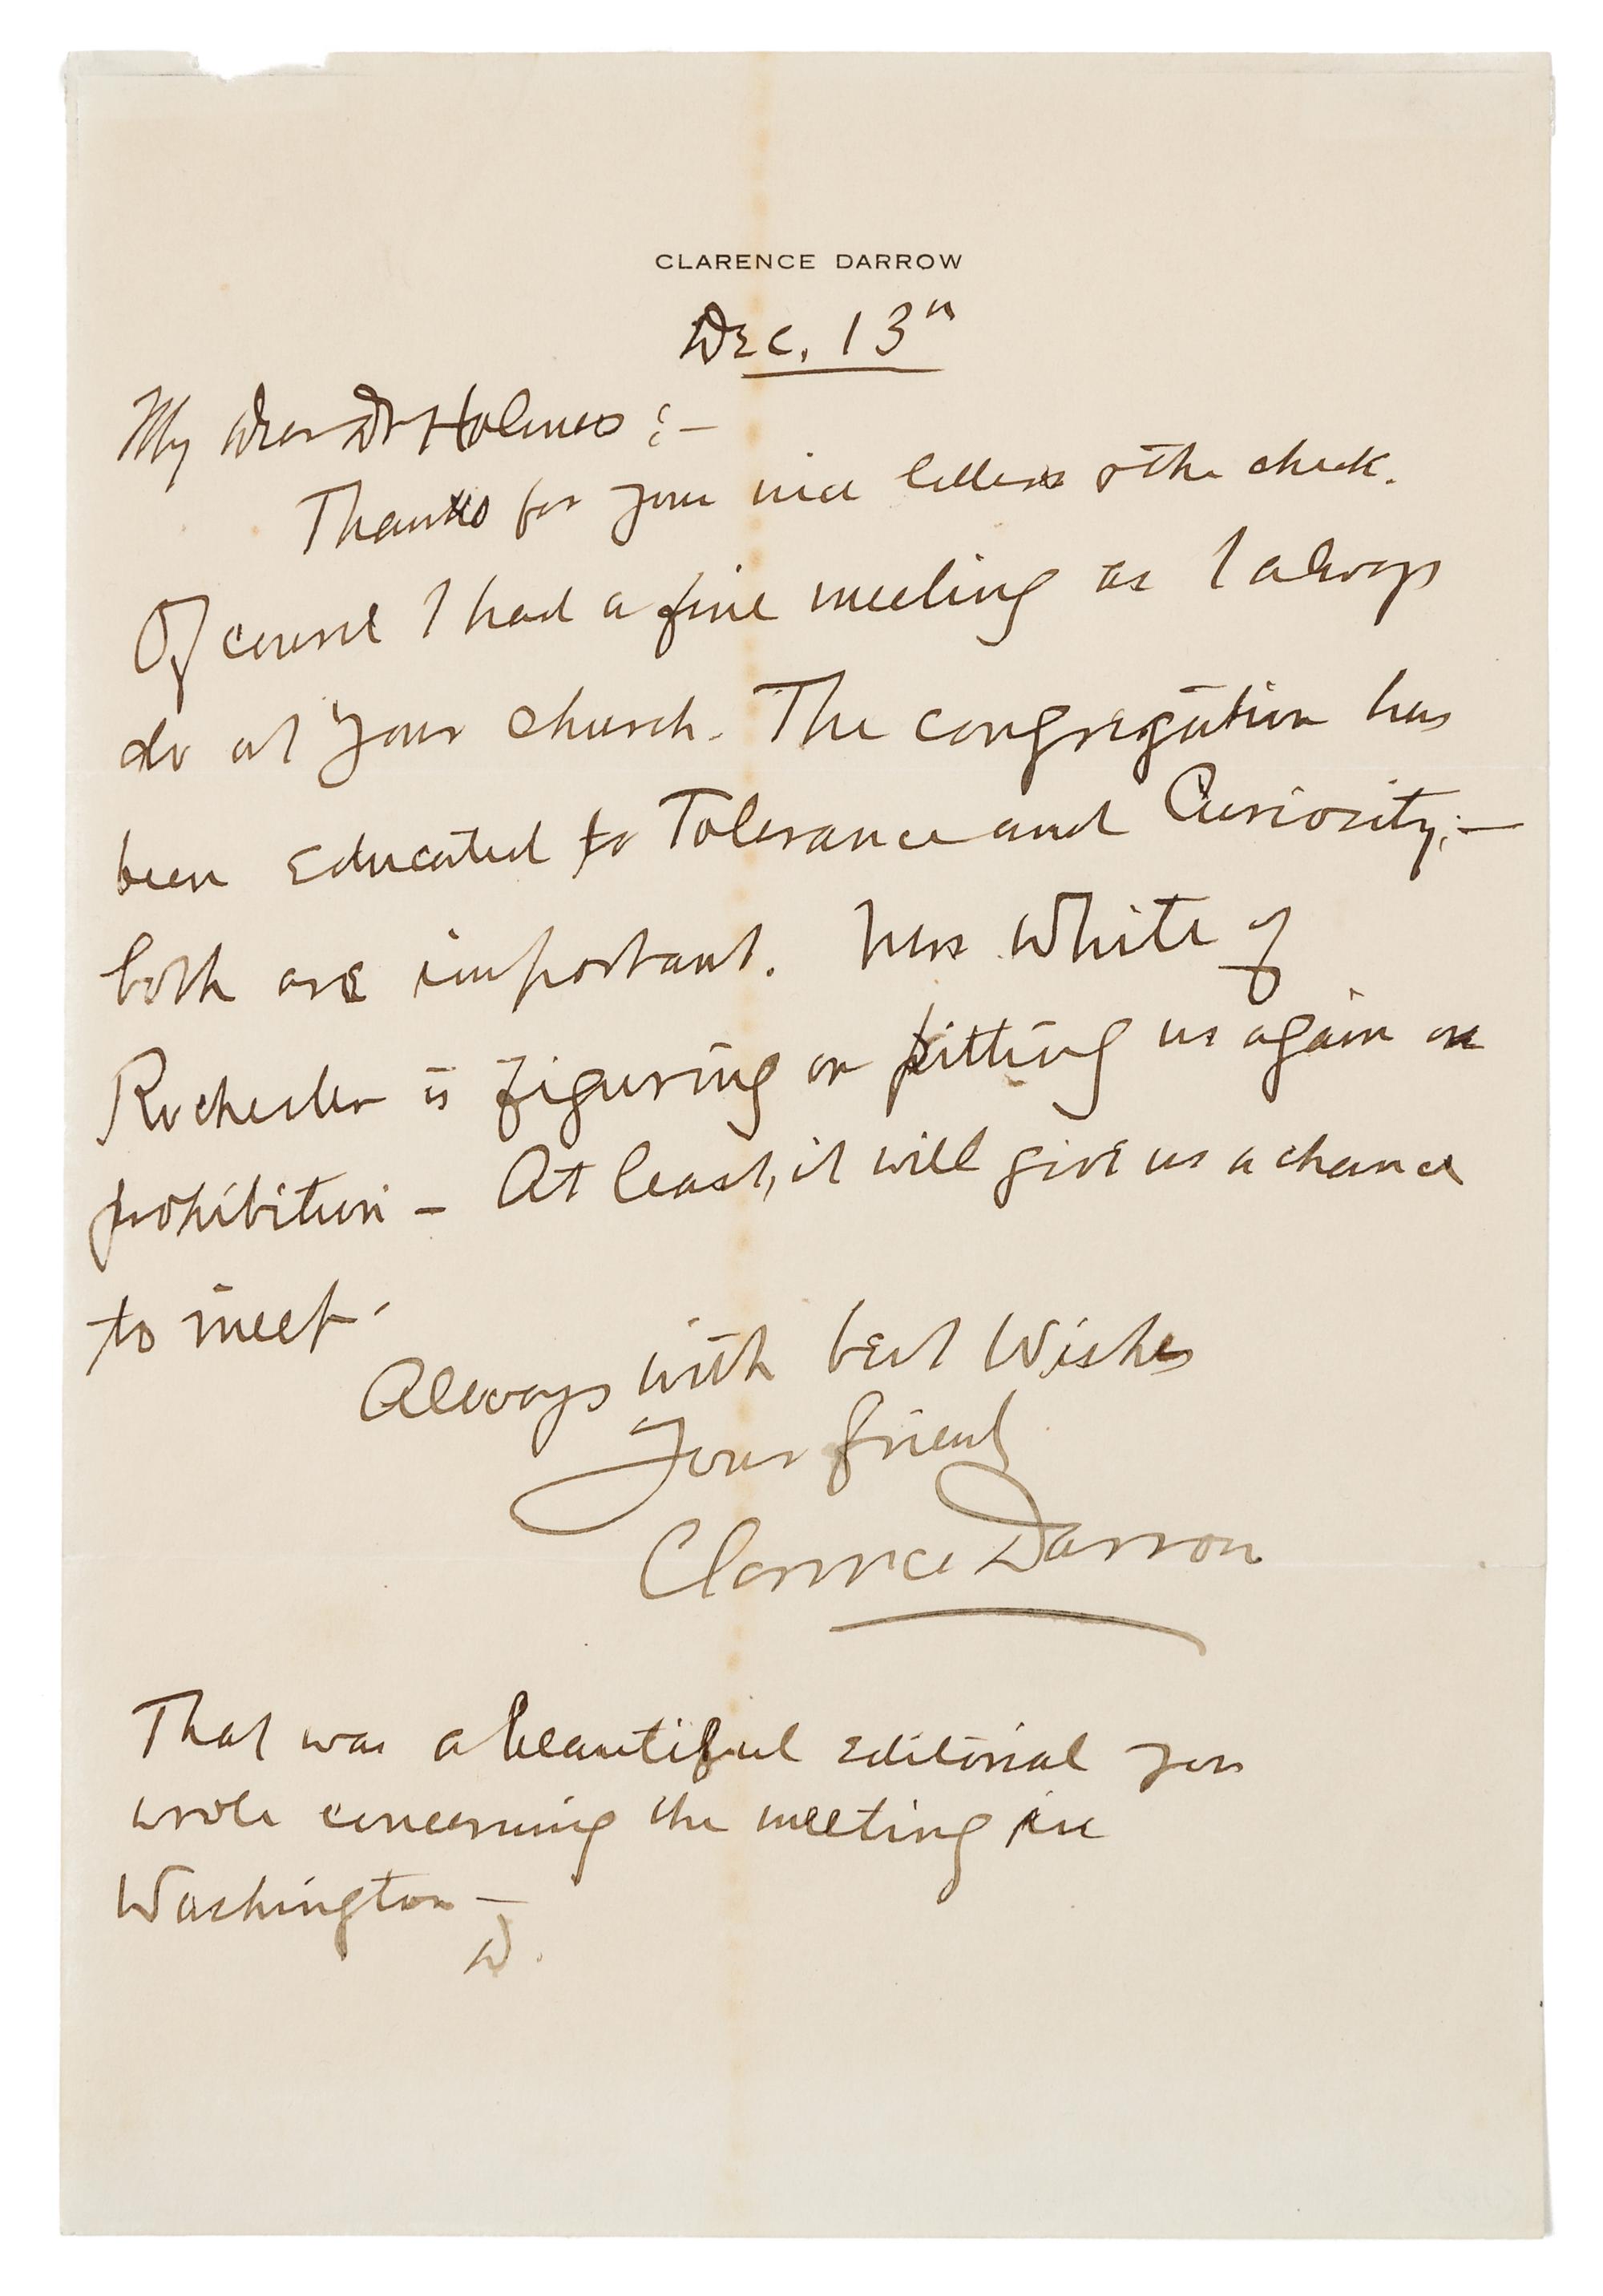 CLARENCE DARROW
Dec. 13th
My dear Dr Holmes :-
Thanks for your nice letter & the check.
Of course I had a fine meeting as I always
do at your church. The congregation has
been educated to Tolerance and Curiosity;-
both are important. White of
Rochester is figuring on pitting us again on
prohibition - At least, it will give us a chance
to meet.
Always with best Wishes
Your friend
Clarence Darrow
That was a beautiful editorial you
wrote concerning the meeting in
Washington -
D.